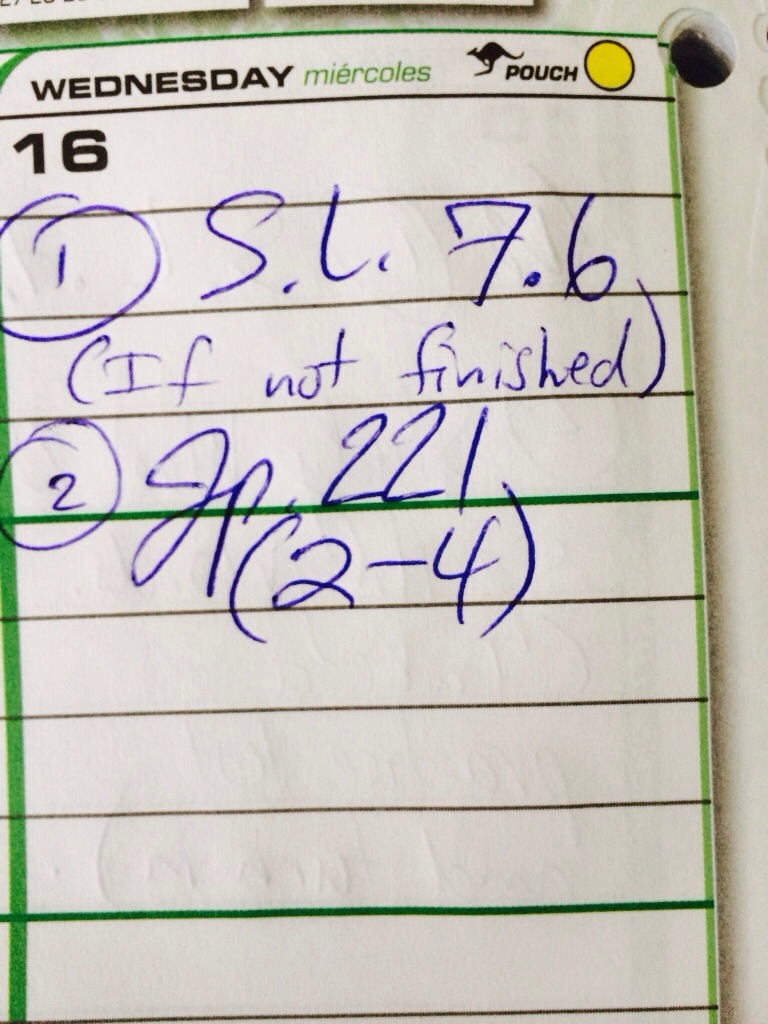 WEDNESDAY miércoles POUCH
16
1 S.L. 7.6
(If not finished)
2 Jp. 221
(2-4)